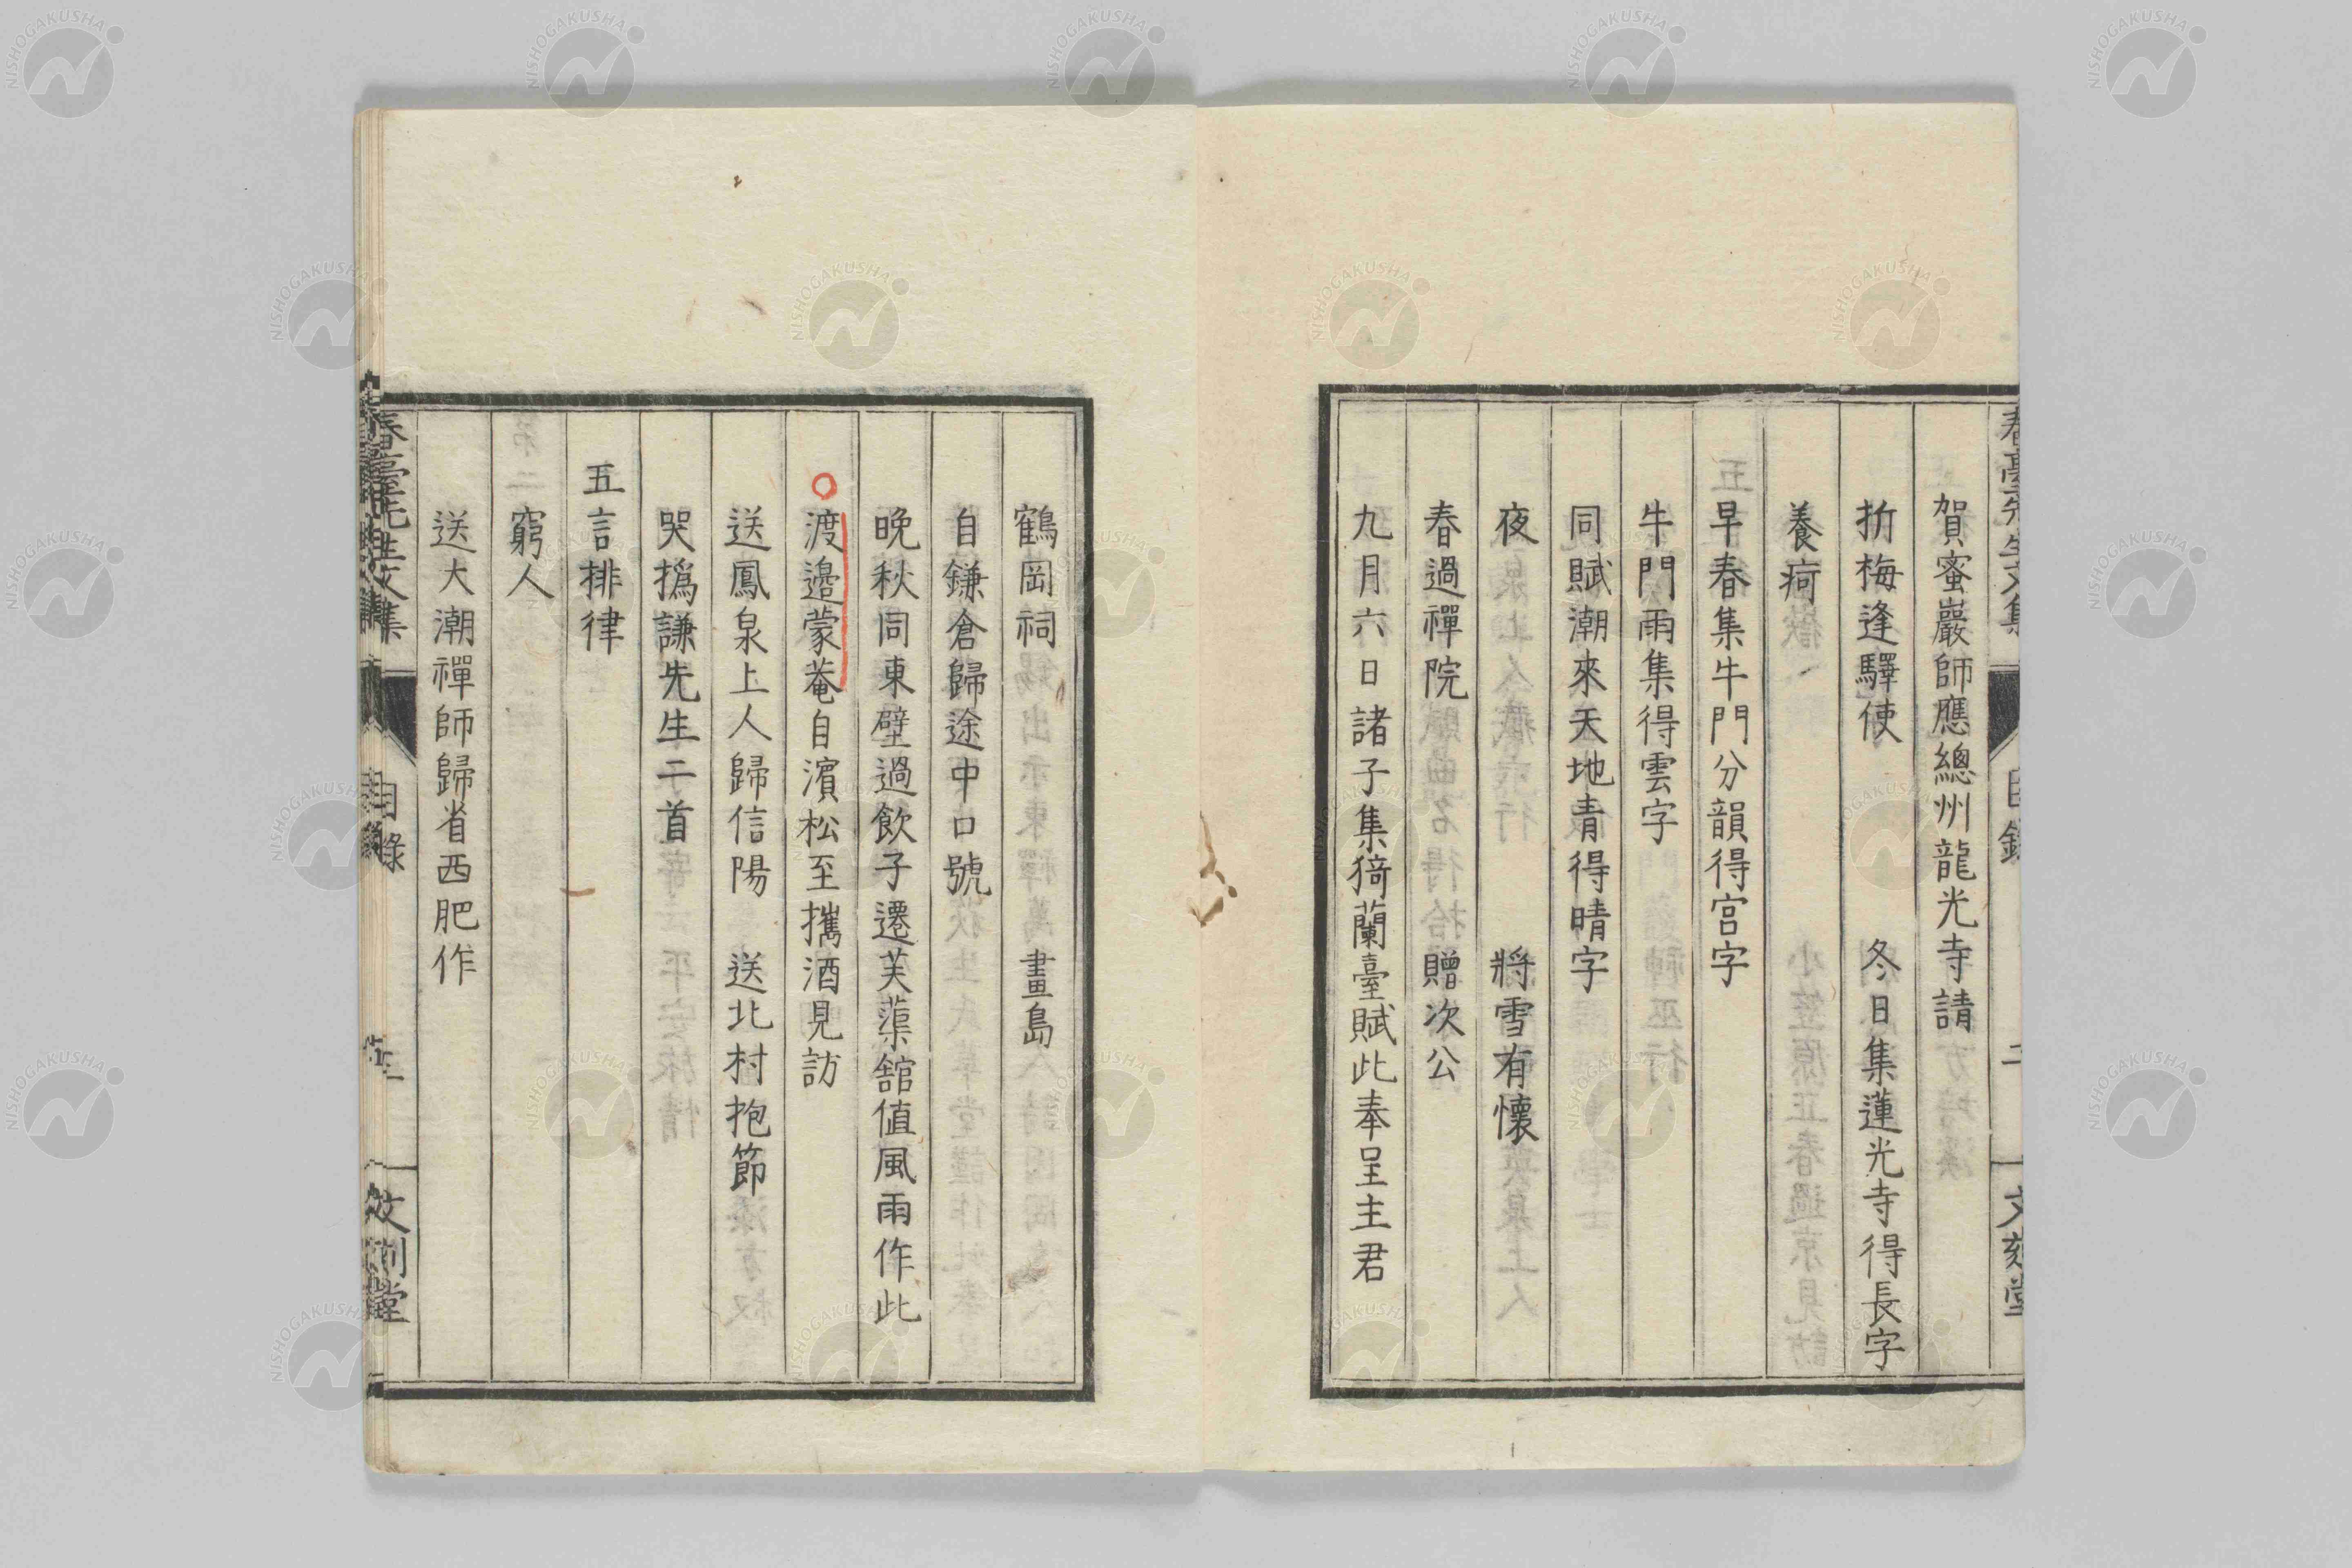 賀蜜巖師應總州龍光寺請
折梅逢驛使　冬日集蓮光寺得長字
養疴
早春集牛門分韻得宮字
牛門雨集得雲字
同賦潮來天地青得晴字
夜　將雪有懷
春過禪院　贈次公
九月六日諸子集猗蘭臺賦此奉呈主君
鶴岡祠　畫島
自鎌倉歸途中口號
晚秋同東壁過飲子遷芙蕖舘值風雨作此
渡邉蒙菴自濱松至攜酒見訪
送鳳泉上人歸信陽　送北村抱節
哭撝謙先生二首
五言排律
窮人
送大潮禪師歸省西肥作
目錄